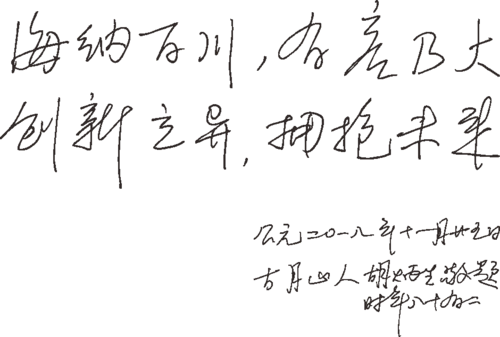 海纳百川,有容乃大
创新立异,拥抱未来
公元二〇一八年十一月廿五日
古月山人胡炳生敬题
时年八十有二